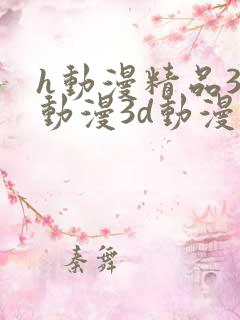 h動漫精品3
動漫3d動漫
秦舞